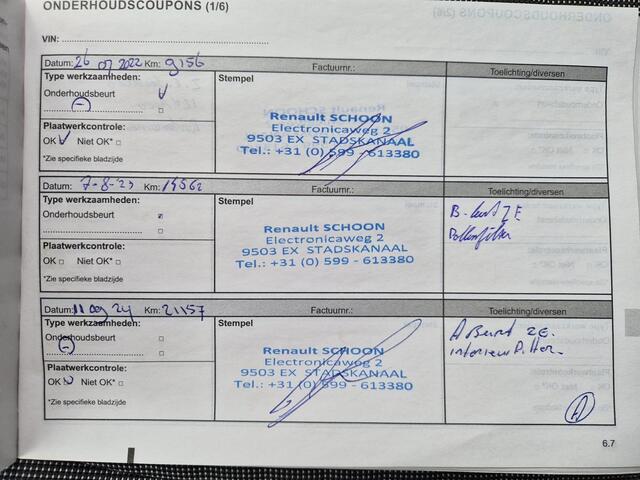 ONDERHOUDSCOUPONS (1/6)
VIN:
Datum: 26 07 2022 Km: 9156 Factuurnr.: Toelichting/diversen
Type werkzaamheden: Stempel
Onderhoudsbeurt
Plaatwerkcontrole:
OK Niet OK*
*Zie specifieke bladzijde
Renault SCHOON
Electronicaweg 2
9503 EX STADSKANAAL
Tel.: +31 (0) 599 - 613380
Datum: 7-8-23 Km: 14562 Factuurnr.: Toelichting/diversen
Type werkzaamheden: Stempel
Onderhoudsbeurt
Plaatwerkcontrole:
OK Niet OK*
*Zie specifieke bladzijde
Renault SCHOON
Electronicaweg 2
9503 EX STADSKANAAL
Tel.: +31 (0) 599 - 613380
B-beurt ZE
Pollenfilter
Datum: 11 09 24 Km: 21157 Factuurnr.: Toelichting/diversen
Type werkzaamheden: Stempel
Onderhoudsbeurt
Plaatwerkcontrole:
OK Niet OK*
*Zie specifieke bladzijde
Renault SCHOON
Electronicaweg 2
9503 EX STADSKANAAL
Tel.: +31 (0) 599 - 613380
A Beurt ZE.
interieur
A
6.7